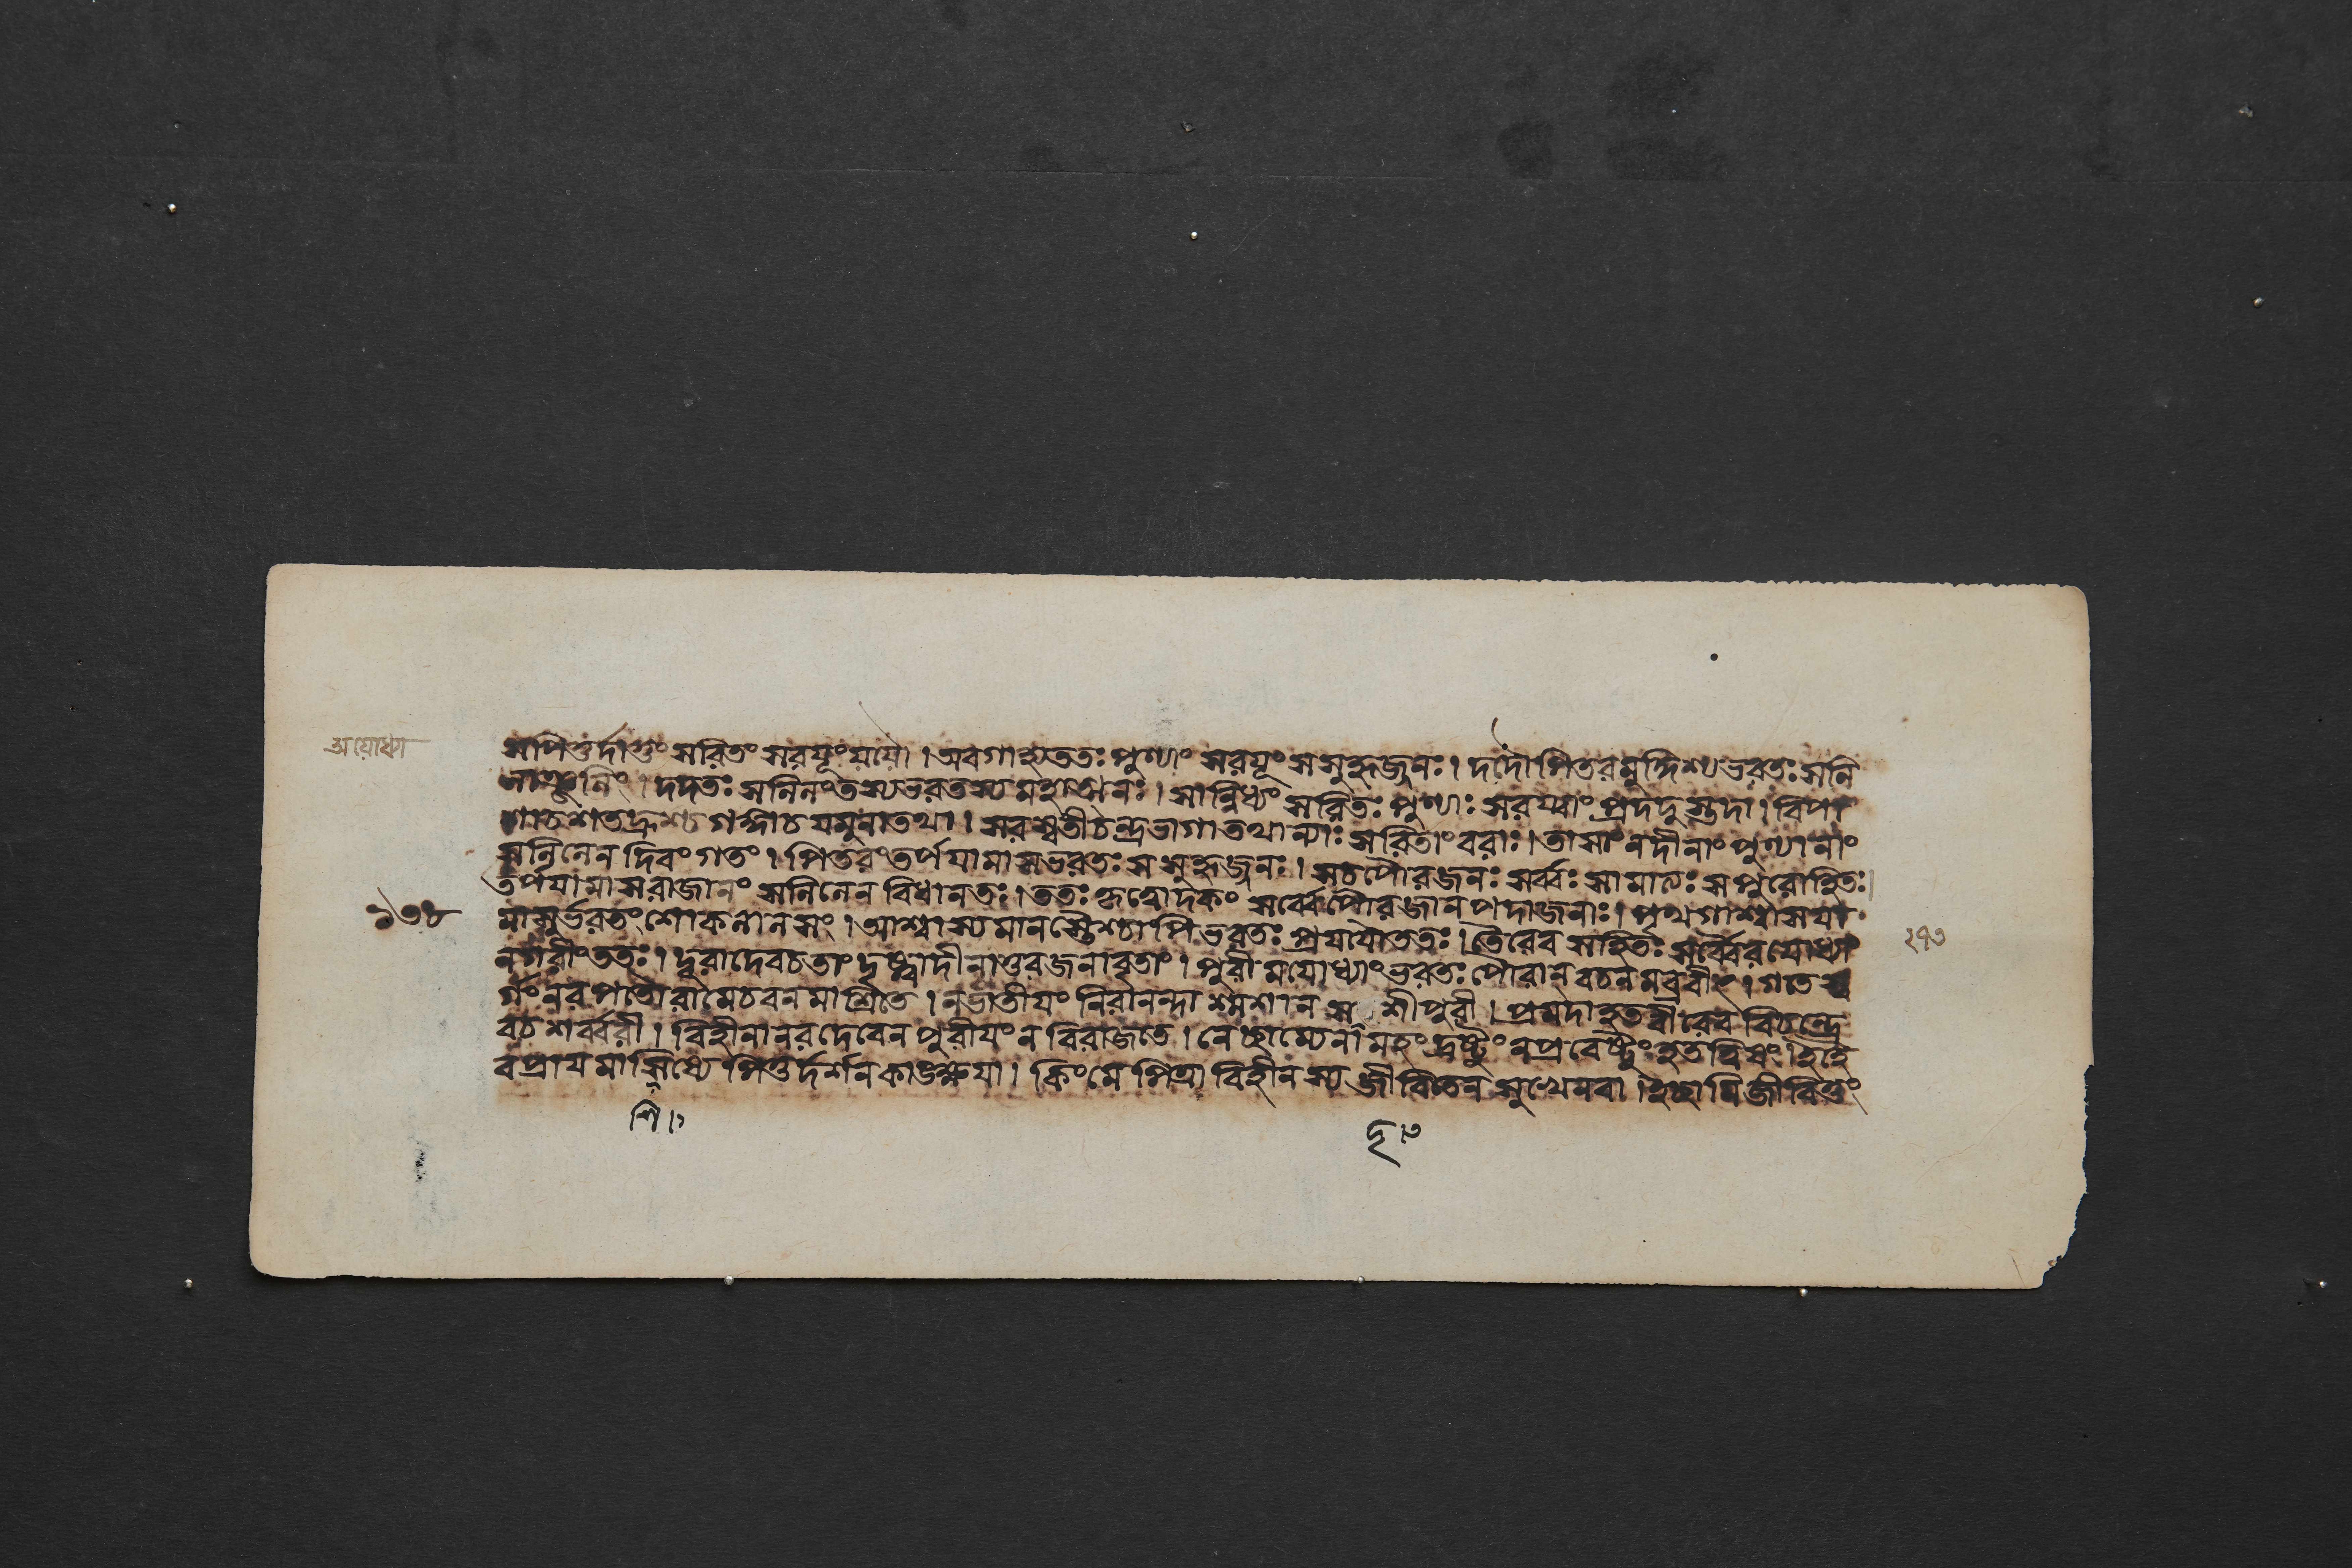 अयोध्या
সপিতুর্দাতুং সরিতং সরযূং যযৌ । অবগাহ্য ততঃ পুণ্যাং সরযূং সসুহৃজ্জনঃ । দদৌ পিতরমুদ্দিশ্য ভরতঃ সলি
লাঞ্জলিং । দদতঃ সলিলং তস্য ভরতস্য মহাত্মনঃ । সান্নিধ্যং সরিতঃ পুণ্যাঃ সরয্বাং প্রদদুস্তদা । বিপা
শা চ শতদ্রুশ্চ গঙ্গা চ যমুনা তথা । সরস্বতী চন্দ্রভাগা তথান্যাঃ সরিতাং বরাঃ । তাসাং নদীনাং পুণ্যানাং
সলিলেন দিবং গতং । পিতরং তর্পযামাস ভরতঃ সসুহৃজ্জনঃ । স চ পৌরজনঃ সর্ব্বঃ সামাত্যঃ সপুরোহিতঃ
তর্পযামাস রাজানং সলিলেন বিধানতঃ । ততঃ কৃত্বোদকং সর্ব্বে পৌরজানপদাজনাঃ । পৃথগাশ্বাসযা
মাসুর্ভরতং শোকলালসং । আশ্বাস্যমানস্তৈশ্চাপি ভরতঃ প্রযযৌ ততঃ । তৈরেব সহিতঃ সর্ব্বৈরযোধ্যাং
নগরীং ততঃ । দূরাদেব চ তাং দৃষ্ট্বা দীনাতুরজনাবৃতাং । পুরীমযোধ্যাং ভরতঃ পৌরান্ বচনমব্রবীৎ । গতে স্ব
র্গং নরপতৌ রামে চ বনমাশ্রিতে । ন ভাতীযং নিরানন্দা শ্মশানস শী পুরী । প্রমদা হৃতবীরেব বিচন্দ্রে
ব চ শর্ব্বরী । বিহীনা নরদেবেন পুরীযং ন বিরাজতে । নেচ্ছাম্যেনামহং দ্রষ্টুং ন প্রবেষ্টুং হতত্বিষং । ইহৈ
ব প্রাযমাসিষ্যে পিতুর্দর্শনকাঙ্ক্ষযা । কিং মে পিত্রা বিহীনস্য জীবিতেন সুখেন বা । ইচ্ছামি জীবিতুং
১৩৪
২৭৩
শি । ১
দৃ । ৩